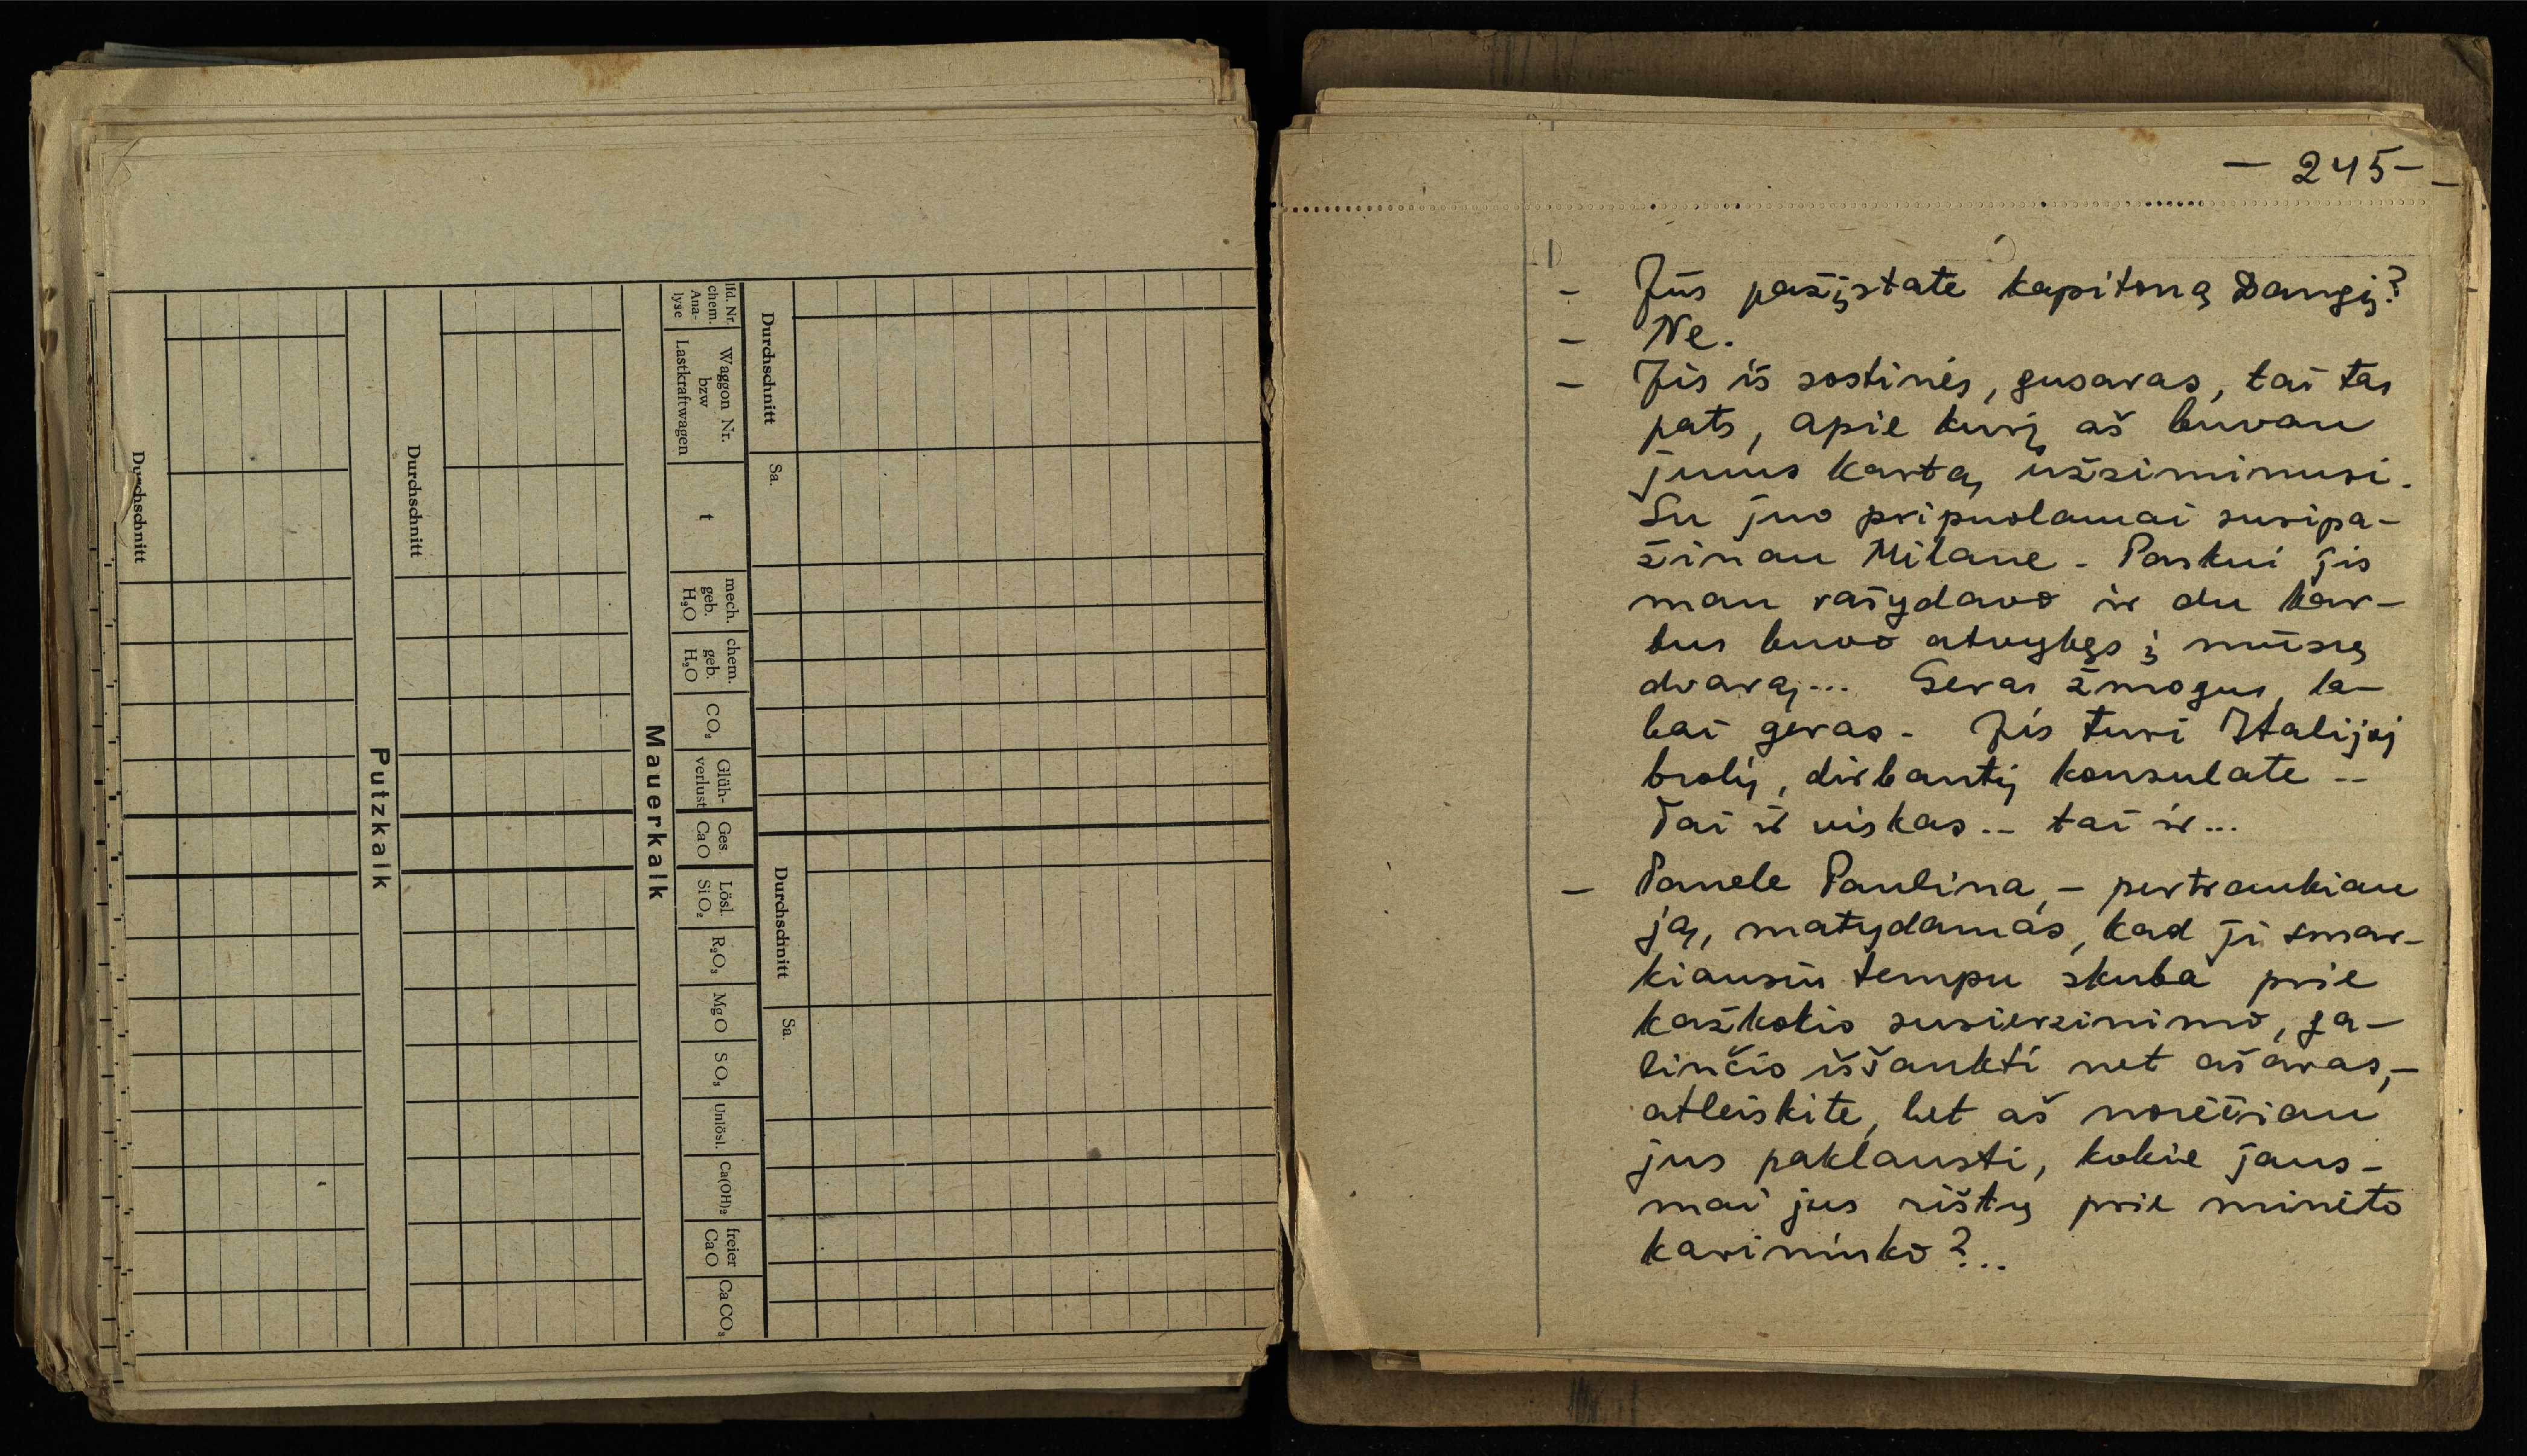 lfd. Nr. chem. Ana- lyse
Waggon Nr. bzw Lastkraftwagen
t
mech. geb. H₂O
chem. geb. H₂O
CO₂
Glüh- verlust
Ges. CaO
Lösl. SiO₂
R₂O₃
MgO
SO₃
Unlösl.
Ca(OH)₂
freier CaO
CaCO₃
Durchschnitt
Sa.
Durchschnitt
Sa.
Mauerkalk
Durchschnitt
Putzkalk
Durchschnitt
— 245 —
— Jūs pažįstate kapitoną Dangį?
— Ne.
— Jis iš sostinės, gusaras, tai tas
pats, apie kurį aš buvau
jums kartą užsiminusi.
Su juo pripuolamai susipa-
žinau Milane. Paskui jis
man rašydavo ir du kar-
tus buvo atvykęs į mūsų
dvarą... Geras žmogus, la-
bai geras. Jis turi Italijoj
brolį, dirbantį konsulate..
Tai ir viskas... tai ir...
— Panele Paulina, – pertraukiau
ją, matydamas, kad ji smar-
kiausiu tempu skuba prie
kažkokio susierzinimo, ga-
linčio iššaukti net ašaras, –
atleiskite, bet aš norėčiau
jus paklausti, kokie jaus-
mai jus rištų prie minėto
karininko?...